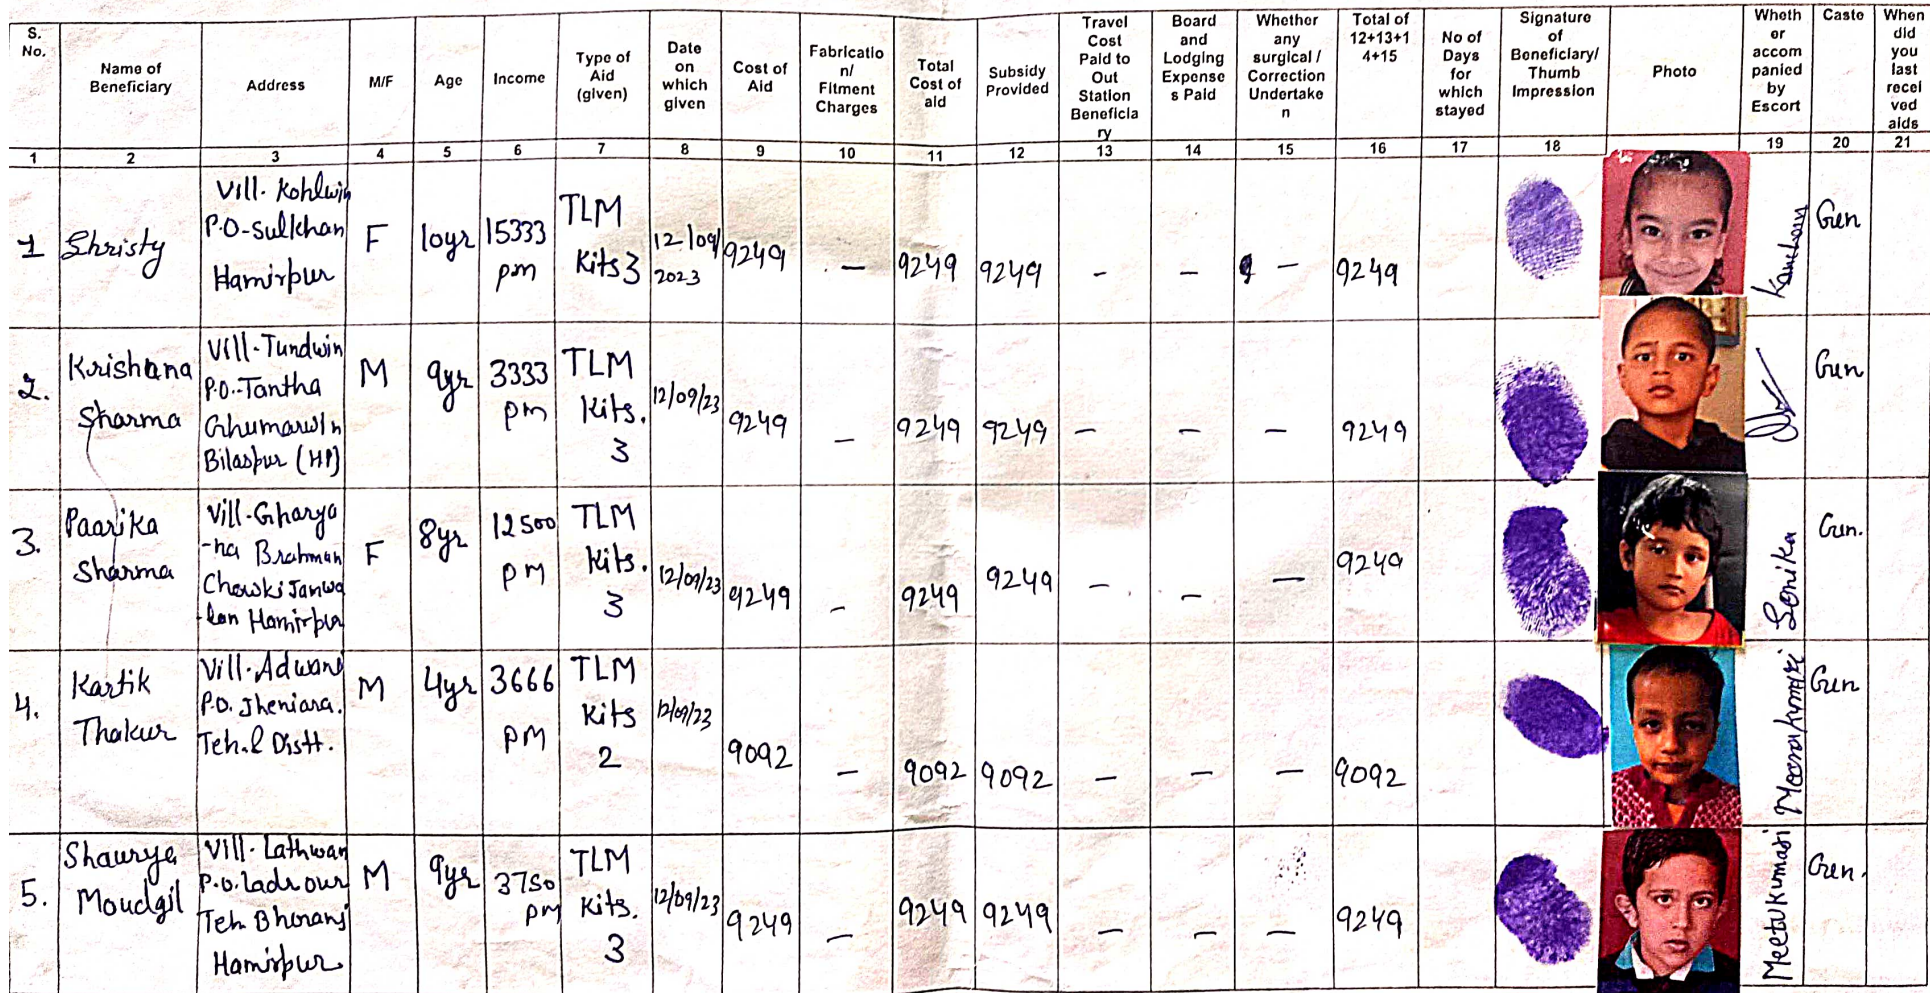 S. No.
Name of Beneficiary
Address
M/F
Age
Income
Type of Aid (given)
Date on which given
Cost of Aid
Fabricatio n/ Fitment Charges
Total Cost of aid
Subsidy Provided
Travel Cost Paid to Out Station Beneficia ry
Board and Lodging Expense s Paid
Whether any surgical / Correction Undertake n
Total of 12+13+1 4+15
No of Days for which stayed
Signature of Beneficiary/ Thumb Impression
Photo
Wheth er accom panied by Escort
Caste
When did you last recei ved aids
1 2 3 4 5 6 7 8 9 10 11 12 13 14 15 16 17 18 19 20 21
1 Shristy
Vill- Kohlwin
P.O-Sulkhan
Hamirpur
F 10yr 15333 pm
TLM Kits 3
12/09/ 2023
9249 - 9249 9249 - - - 9249
Kanchan
Gen
2. Krishana Sharma
Vill-Tundwin
P.O.-Tantha
Ghumarwin
Bilaspur (HP)
M 9yr 3333 pm
TLM Kits. 3
12/09/23
9249 - 9249 9249 - - - 9249
Gen
3. Paarika Sharma
Vill-Gharya
-na Brahman
Chowki Janwa
-lan Hamirpur
F 8yr 12500 pm
TLM Kits. 3
12/09/23
9249 - 9249 9249 - - - 9249
Sonika
Gen.
4. Kartik Thakur
Vill-Adwani
P.O. Jheniara.
Teh. & Distt.
M 4yr 3666 PM
TLM Kits 2
12/09/23
9092 - 9092 9092 - - - 9092
Meena Kumari
Gen
5. Shaurya Moudgil
Vill- Lathwan
P.O. Ladrour
Teh. Bhoranj
Hamirpur
M 9yr 3750 pm
TLM Kits. 3
12/09/23
9249 - 9249 9249 - - - 9249
Meetu Kumari
Gen.